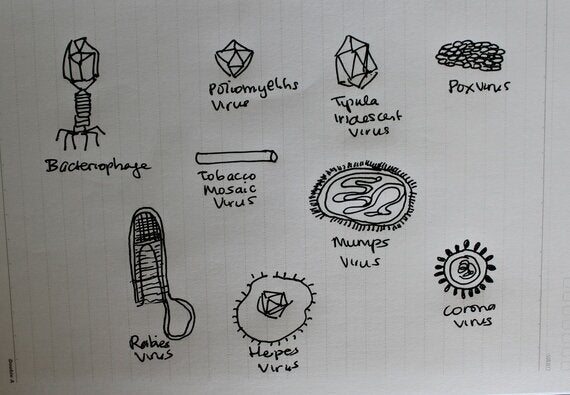 Poliomyelhs
Virus
Tipula
Iridescent
Virus
Poxvirus
Bacteriophage
Tobacco
Mosaic
Virus
Mumps
Virus
Rabies
Virus
Hepes
Virus
Corona
Virus
Double A